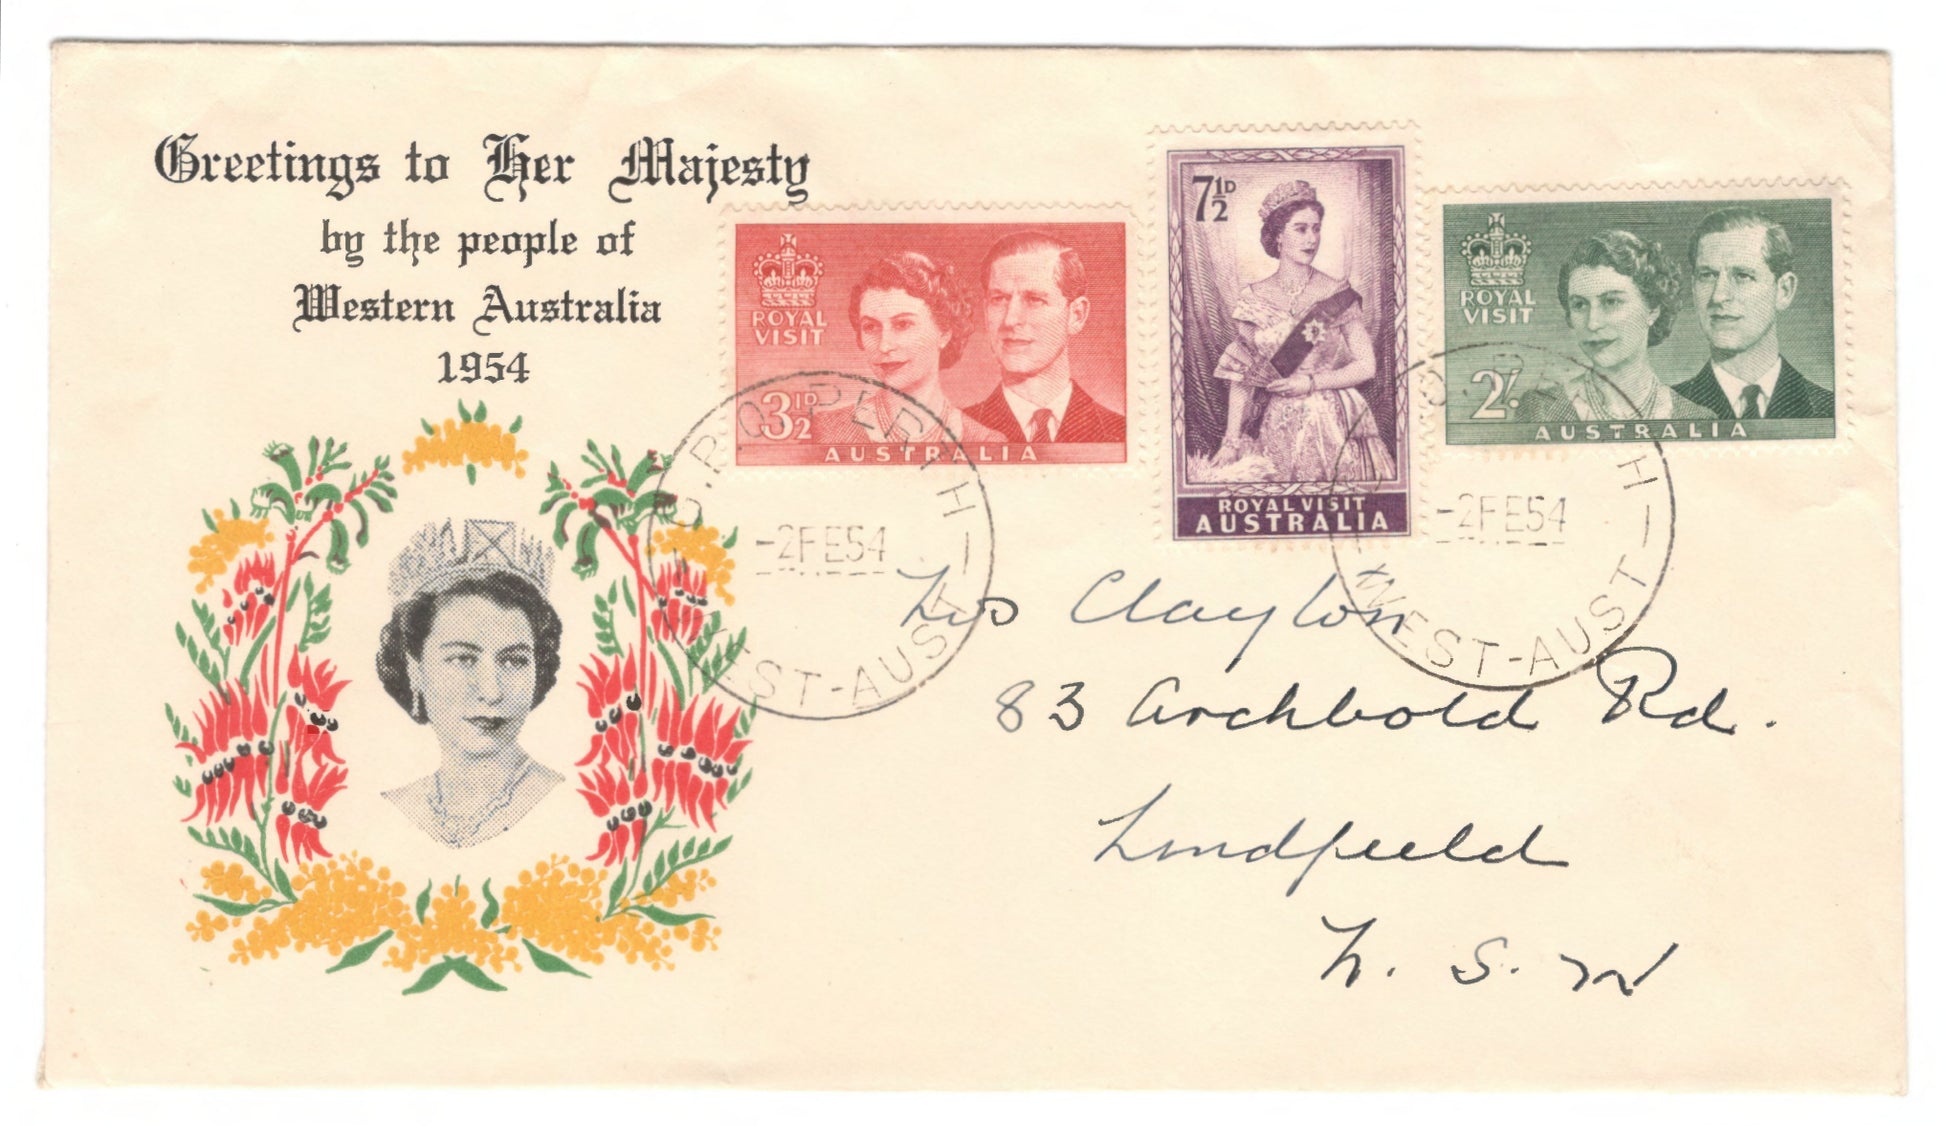 Greetings to Her Majesty
by the people of
Western Australia
1954
ROYAL
VISIT
3½D
AUSTRALIA
7½D
ROYAL VISIT
AUSTRALIA
ROYAL
VISIT
2/-
AUSTRALIA
G.P.O. PERTH
-2FE54
WEST-AUST
G.P.O. PERTH
-2FE54
WEST-AUST
Clayton
83 Archbold Rd.
Lindfield
N. S. W